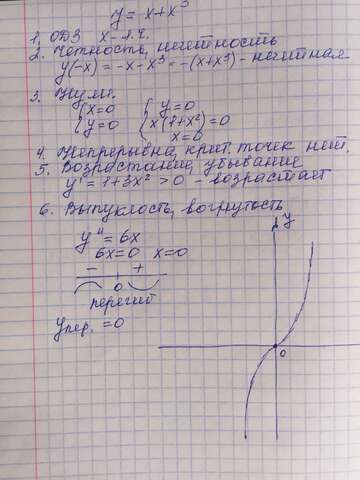 y = x+x³
1. ОДЗ x - л.ч.
2. Четность, нечетность
y(-x) = -x - x³ = -(x+x³) - нечетная
3. Нули.
{x=0 {y=0
{y=0 {x(1+x²)=0
x=0
4. Непрерывна, крит. точек нет.
5. Возрастание, убывание
y' = 1+3x² > 0 - возрастает
6. Выпуклость, вогнутость
y'' = 6x
6x=0 x=0
- +
0
перегиб
y пер. = 0
y
0